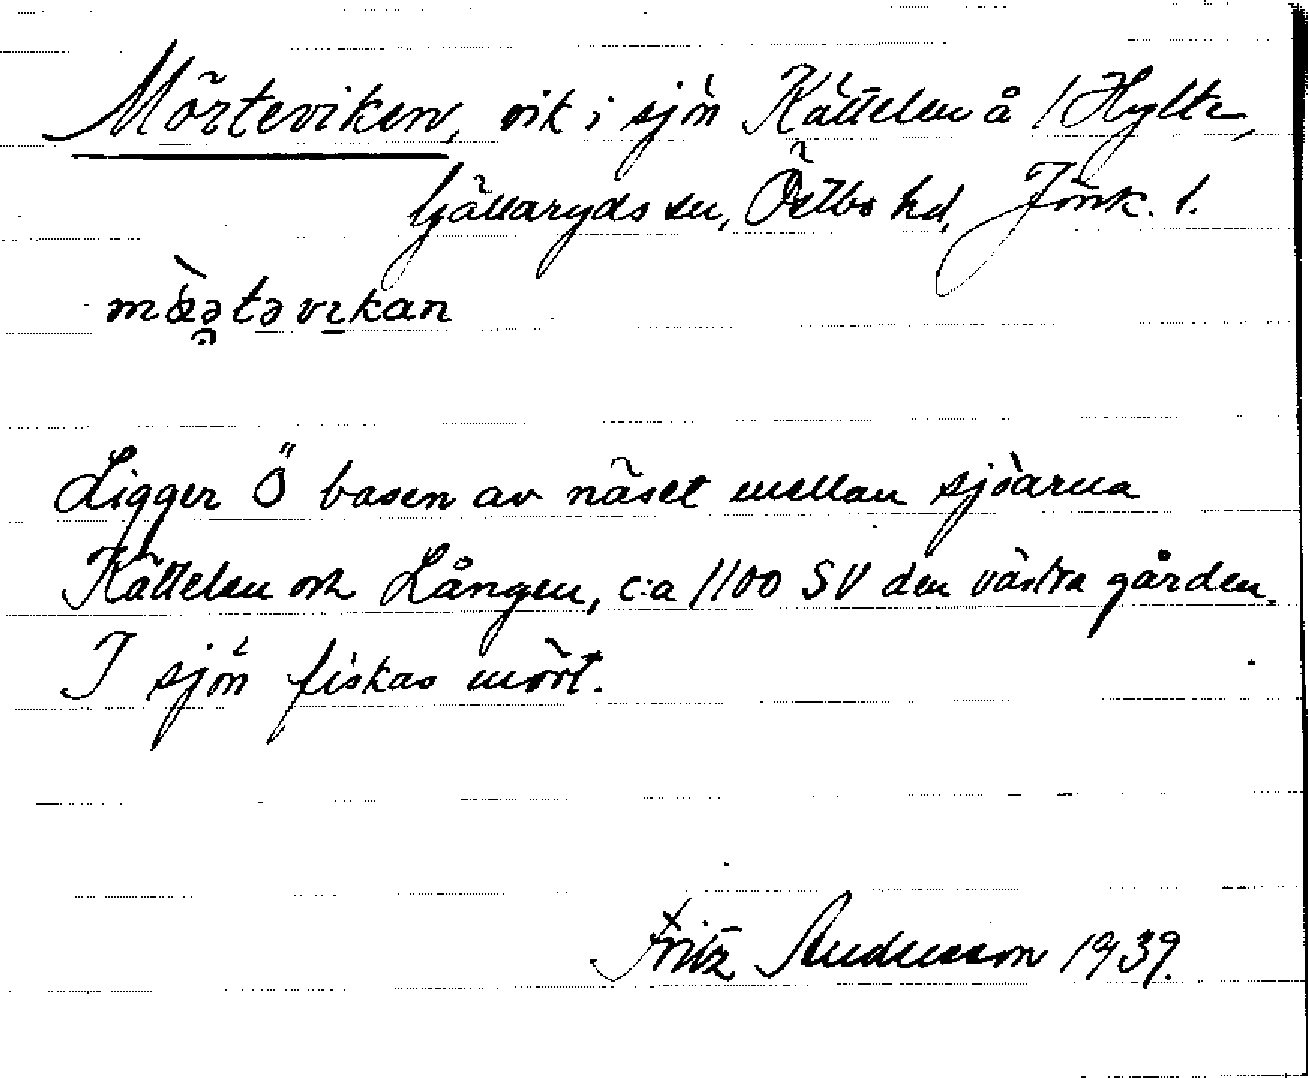 Mörteviken, vik i sjön Kättelen å 1 Hylte,
Gällaryds sn, Östbo hd, Jönk. l.
mö̀ətəvikan
Ligger Ö basen av näset mellan sjöarna
Kättelen och Lången, c:a 1100 SV den västra gården.
I sjön fiskas mört.
Fritz Andersson 1939.